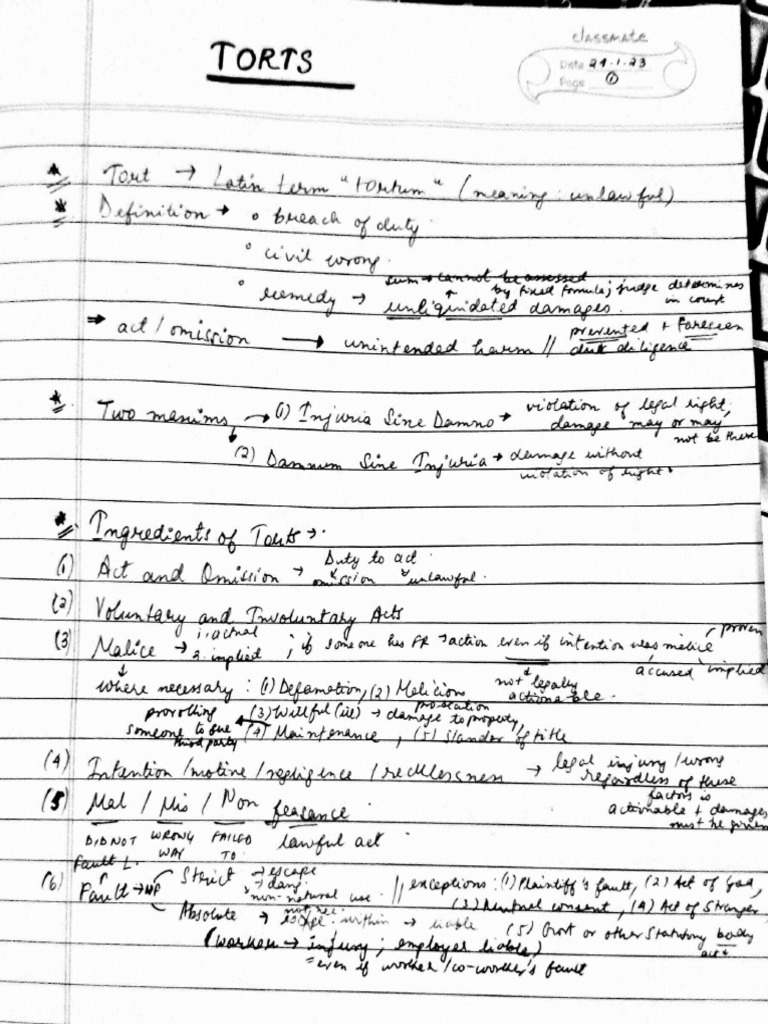 classmate
TORTS
Date 24.1.23
Page ①
* Tort → Latin term "tortum" (meaning: unlawful)
* Definition → ∘ breach of duty
∘ civil wrong.
∘ remedy → unliquidated damages.
sum → cannot be assessed
by fixed formula; judge determines
in court
⇒ act/omission → unintended harm // prevented + foreseen
due diligence
* Two maxims → (1) Injuria Sine Damno → violation of legal right,
damage may or may
not be there
(2) Damnum Sine Injuria → damage without
violation of right.
* Ingredients of Torts →.
(1) Act and Omission → Duty to act
omission unlawful.
(2) Voluntary and Involuntary Acts
(3) Malice → 1. actual
2. implied ; if someone has FR → action even if intention was malice proven
accused implied
not legally
actionable.
where necessary: (1) Defamation, (2) Malicious
prosecution
(3) Willful → damage to property,
provoking
someone to sue
third party
(4) Maintenance, (5) Slander of title
(4) Intention/motive/negligence/recklessness → legal injury/wrong
regardless of these
factors is
actionable + damages
must be given
(5) Mal / Mis / Non feasance
DID NOT WRONG FAILED lawful act
WAY TO
Fault L.
(6) Fault → Strict → escape
→ dang.
→ non-natural use. // exceptions: (1) Plaintiff's fault, (2) Act of God,
(3) Mutual consent, (4) Act of Stranger
Absolute → not nec.
escape: within → liable (5) Govt or other Statutory body
act
(worker → injury; employer liable)
= even if worker/co-worker's fault